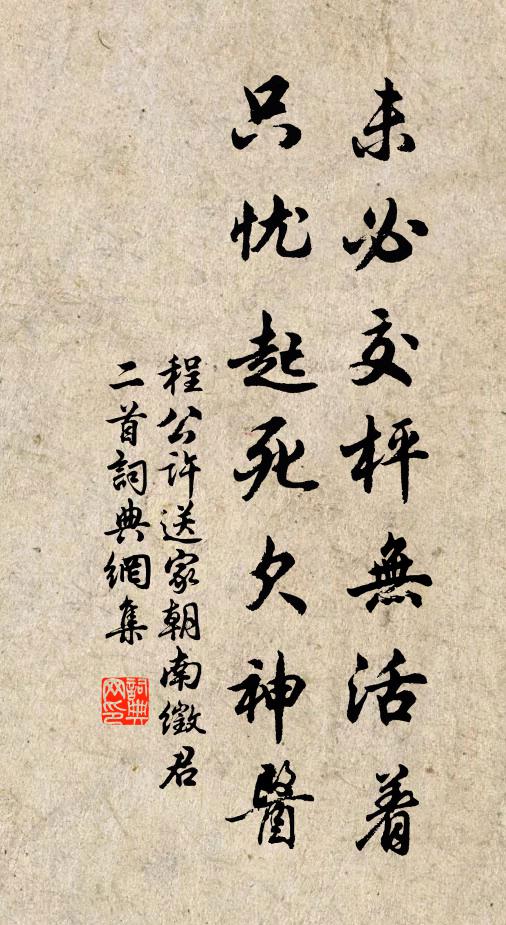 未必交枰無活着
只忧起死欠神醫
程公许送家朝南徵君
二首詞典網集
詞典
网印